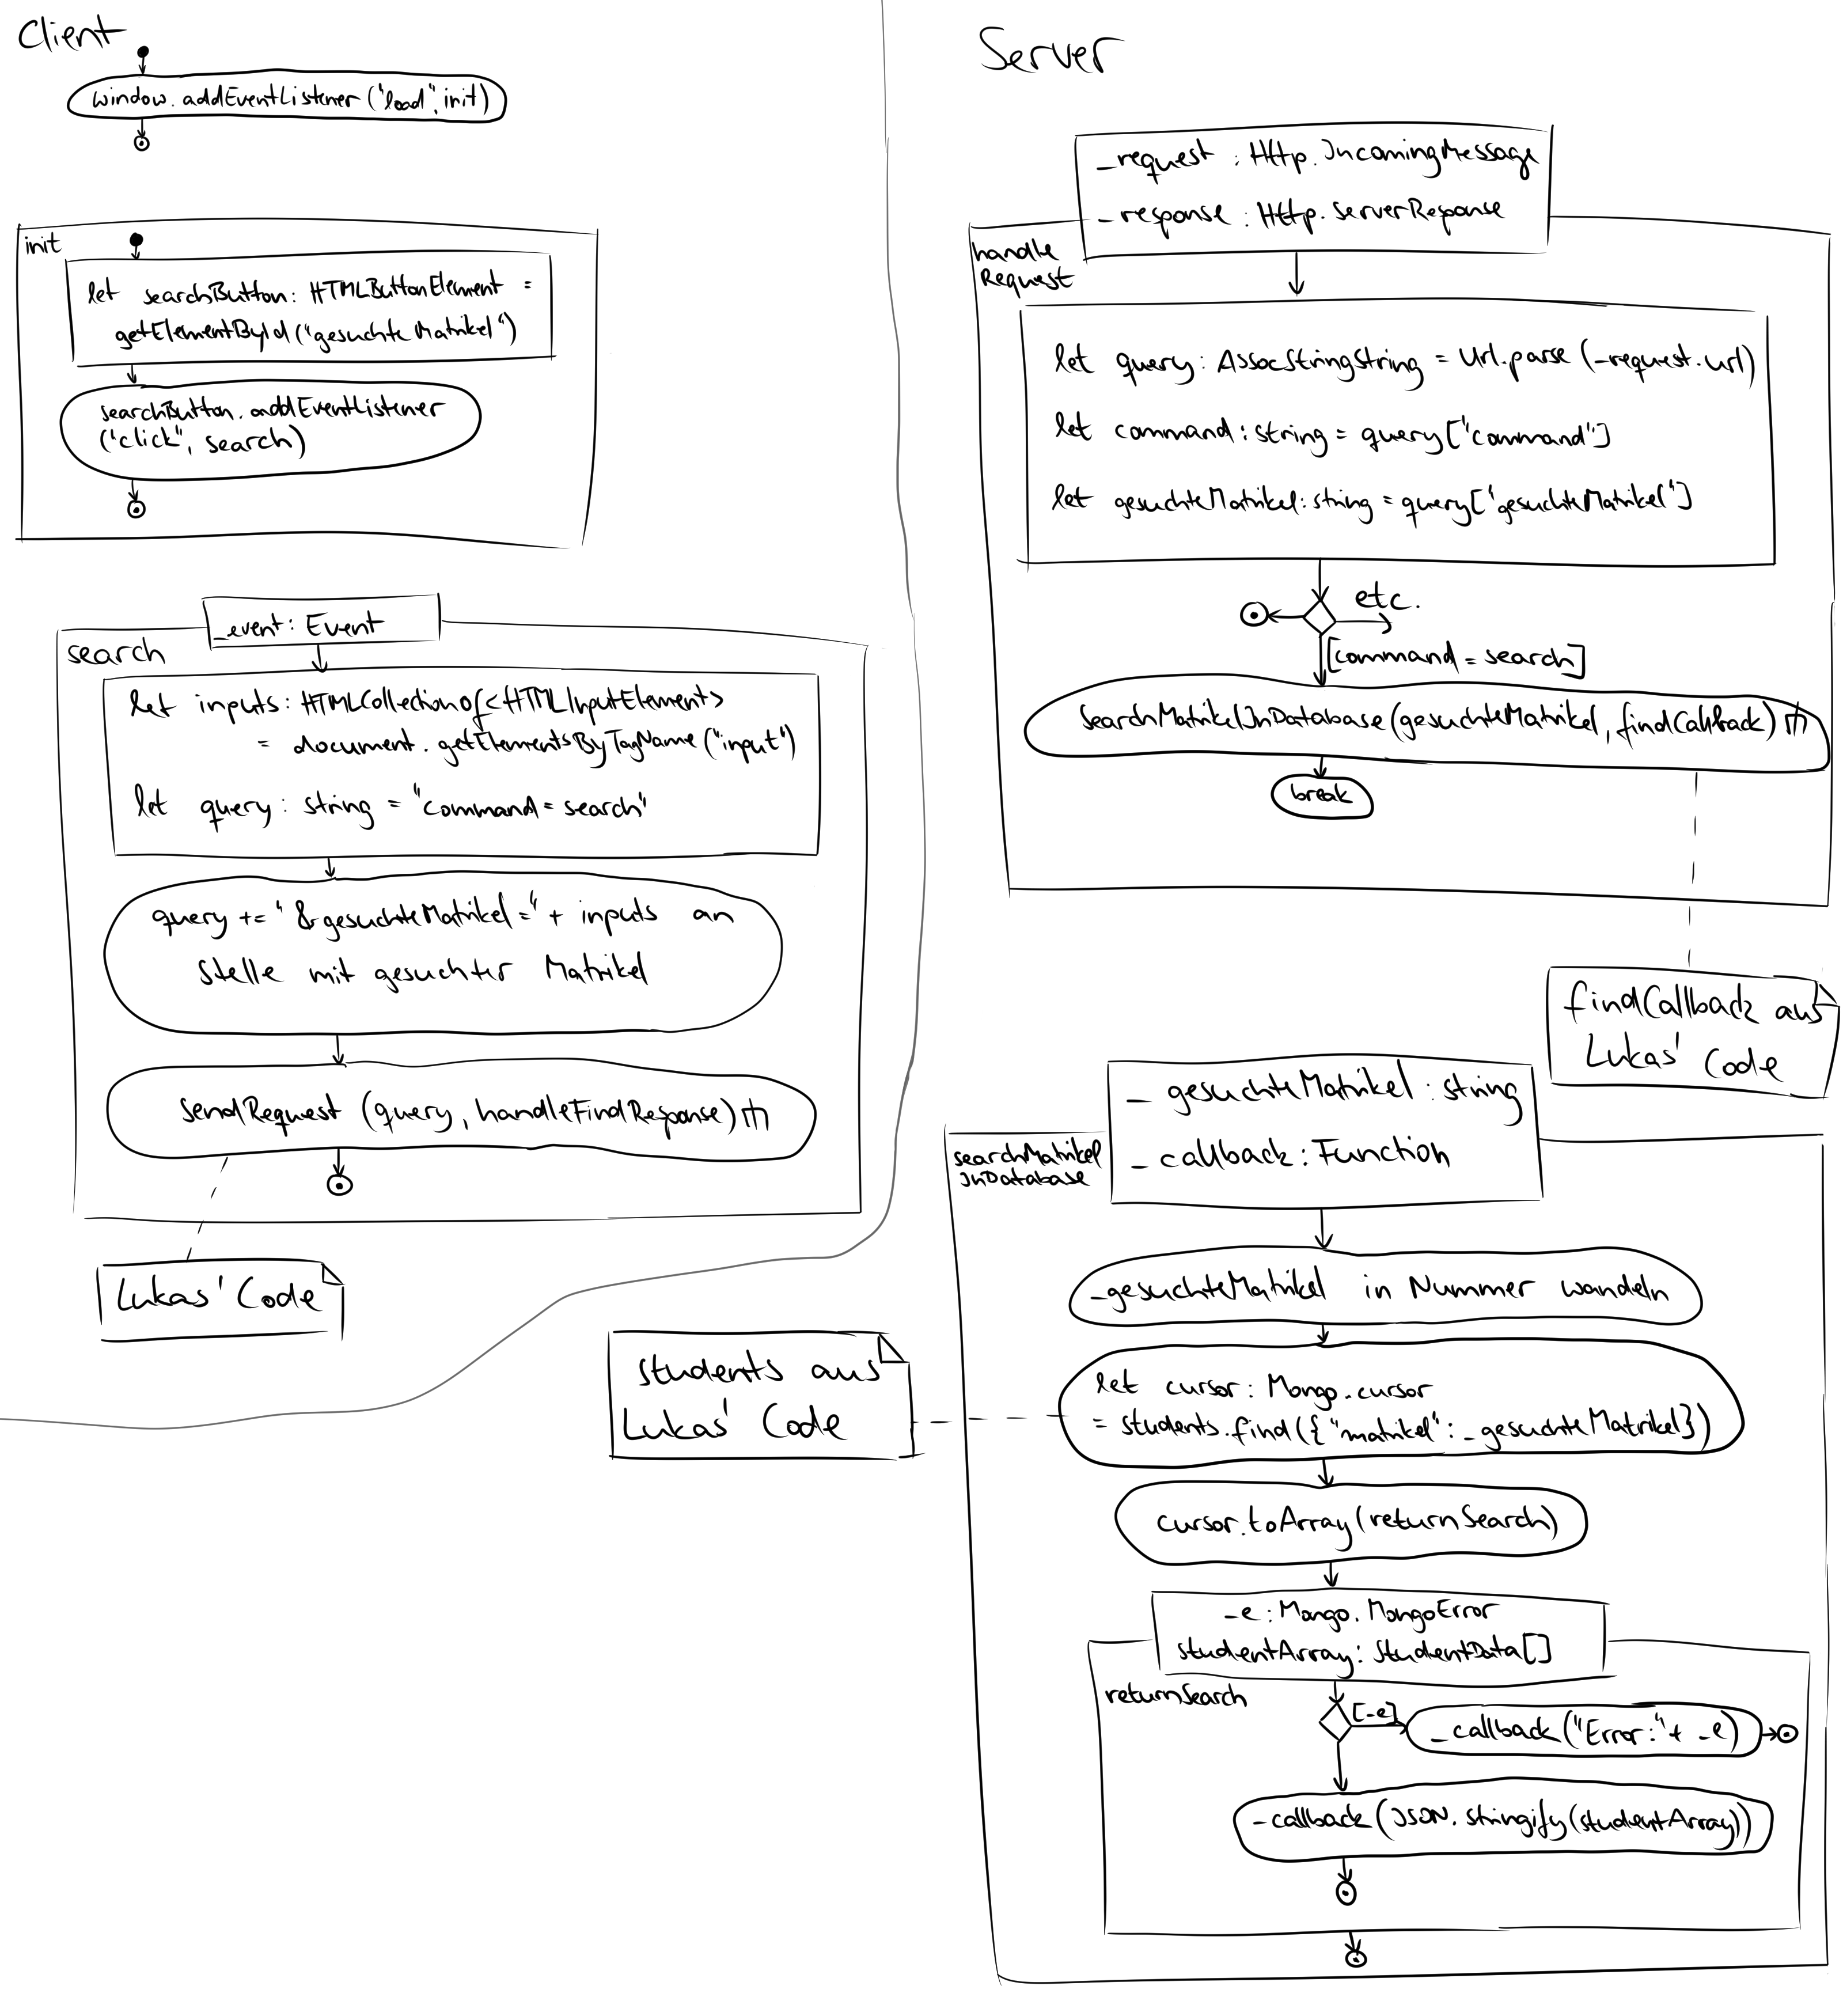 Client
window.addEventListener("load", init)
init
let searchButton: HTMLButtonElement =
getElementById("gesuchteMatrikel")
searchButton.addEventListener
("click", search)
_event: Event
search
let inputs: HTMLCollectionOf<HTMLInputElement>
= document.getElementsByTagName("input")
let query: string = "command=search"
query += "&gesuchteMatrikel=" + inputs an
Stelle mit gesuchter Matrikel
sendRequest (query, handleFindResponse)
Lukas' Code
Server
_request: Http.IncomingMessage
_response: Http.ServerResponse
handle
Request
let query: AssocStringString = Url.parse(_request.url)
let command: string = query["command"]
let gesuchteMatrikel: string = query["gesuchteMatrikel"]
etc.
[command=search]
searchMatrikelInDatabase(gesuchteMatrikel, findCallback)
break
findCallback aus
Lukas' Code
_gesuchteMatrikel: string
_callback: Function
searchMatrikel
InDatabase
_gesuchteMatrikel in Nummer wandeln
let cursor: Mongo.cursor
= students.find({"matrikel":_gesuchteMatrikel})
students aus
Lukas' Code
cursor.toArray(returnSearch)
_e: Mongo.MongoError
studentArray: StudentData[]
returnSearch
[_e]
_callback("Error:" + _e)
_callback(JSON.stringify(studentArray))